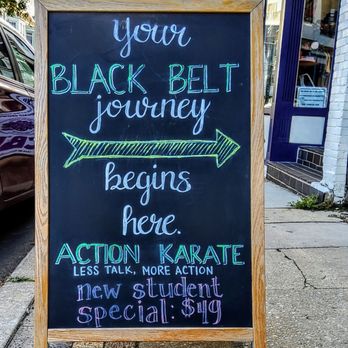 your
BLACK BELT
journey
begins
here.
ACTION KARATE
LESS TALK, MORE ACTION
new student
special: $49